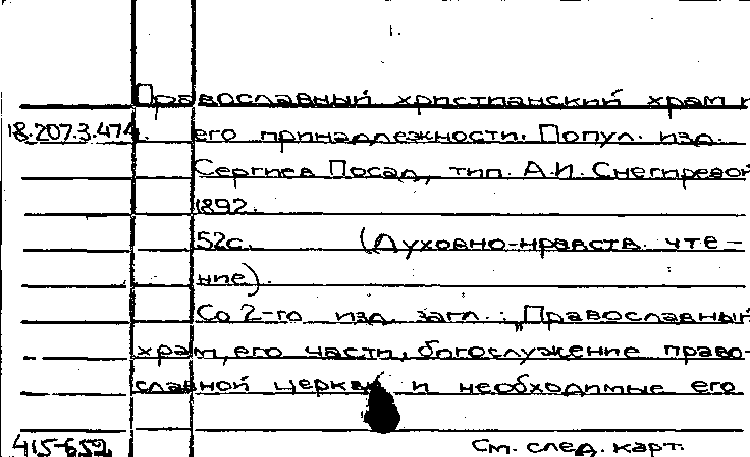 1.
Православный христианский храм и
18.207.3.474. его принадлежности. Попул. изд.
Сергиев Посад, тип. А.И. Снегиревой
1892.
52с. (Духовно-нравств. чте-
ние).
Со 2-го изд. загл.: „Православный
храм, его части, богослужение право-
славной церкви и необходимые его
415-652 См. след. карт.